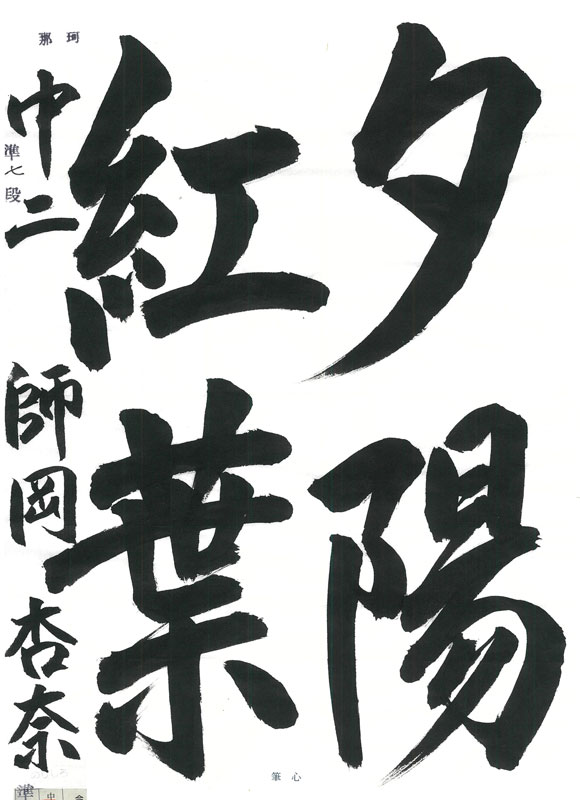 夕陽
紅葉
中二 師岡 杏奈
準七段
珂那
心筆
準
中